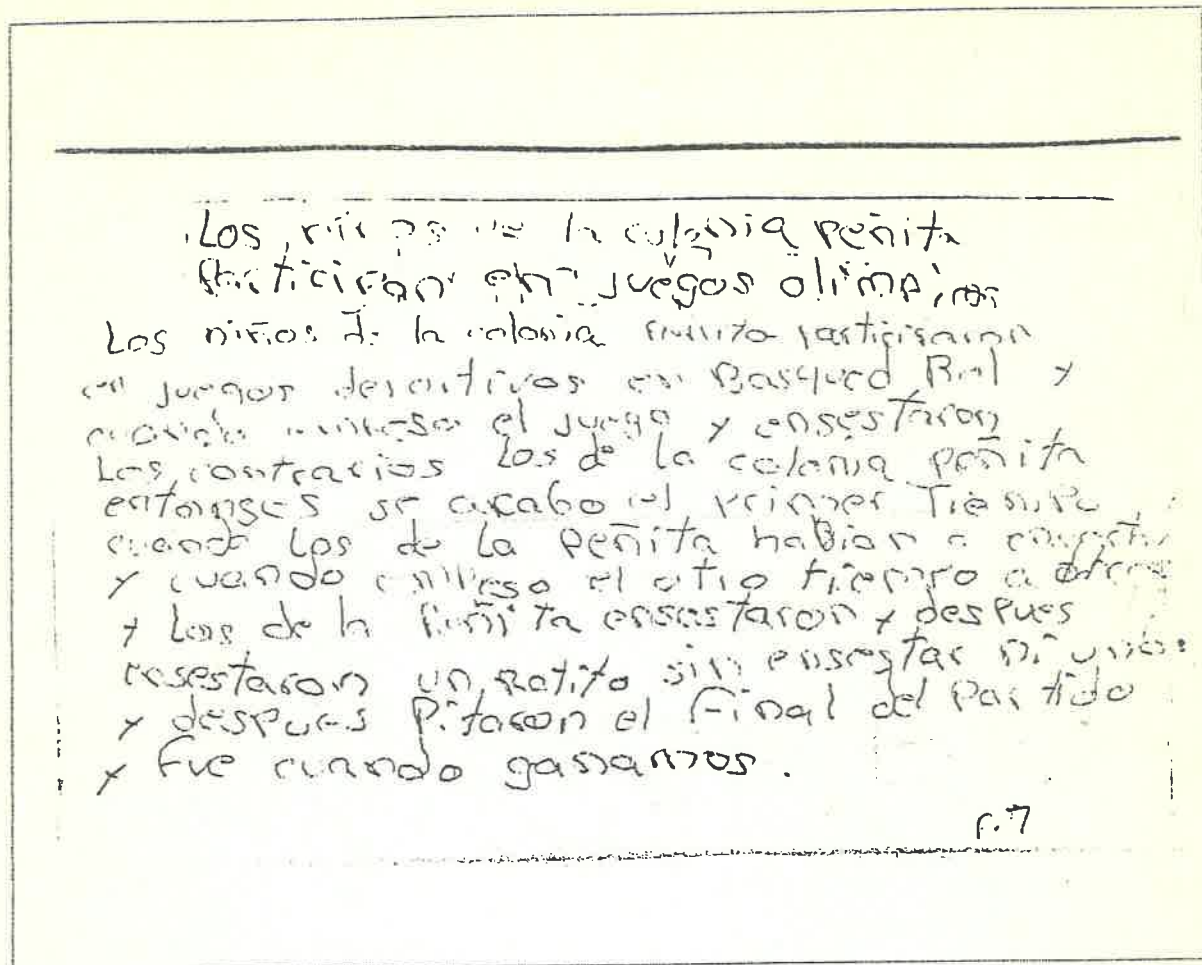 Los niños de la colonia peñita
Participan en juegos olimpicos
Los niños de la colonia peñita participaron
en juegos deportivos en Basqued Bol y
cuando empeso el juego y ensestaron
Los contrarios Los de la colonia peñita
entonses se acabo el primer Tiempo
cuando Los de La Peñita habian
y cuando empeso el otro tiempo a
y Los de la Peñita ensestaron y despues
un ratito sin ensestar ni
y despues Pitaron el Final del Partido
y Fue cuando ganamos.